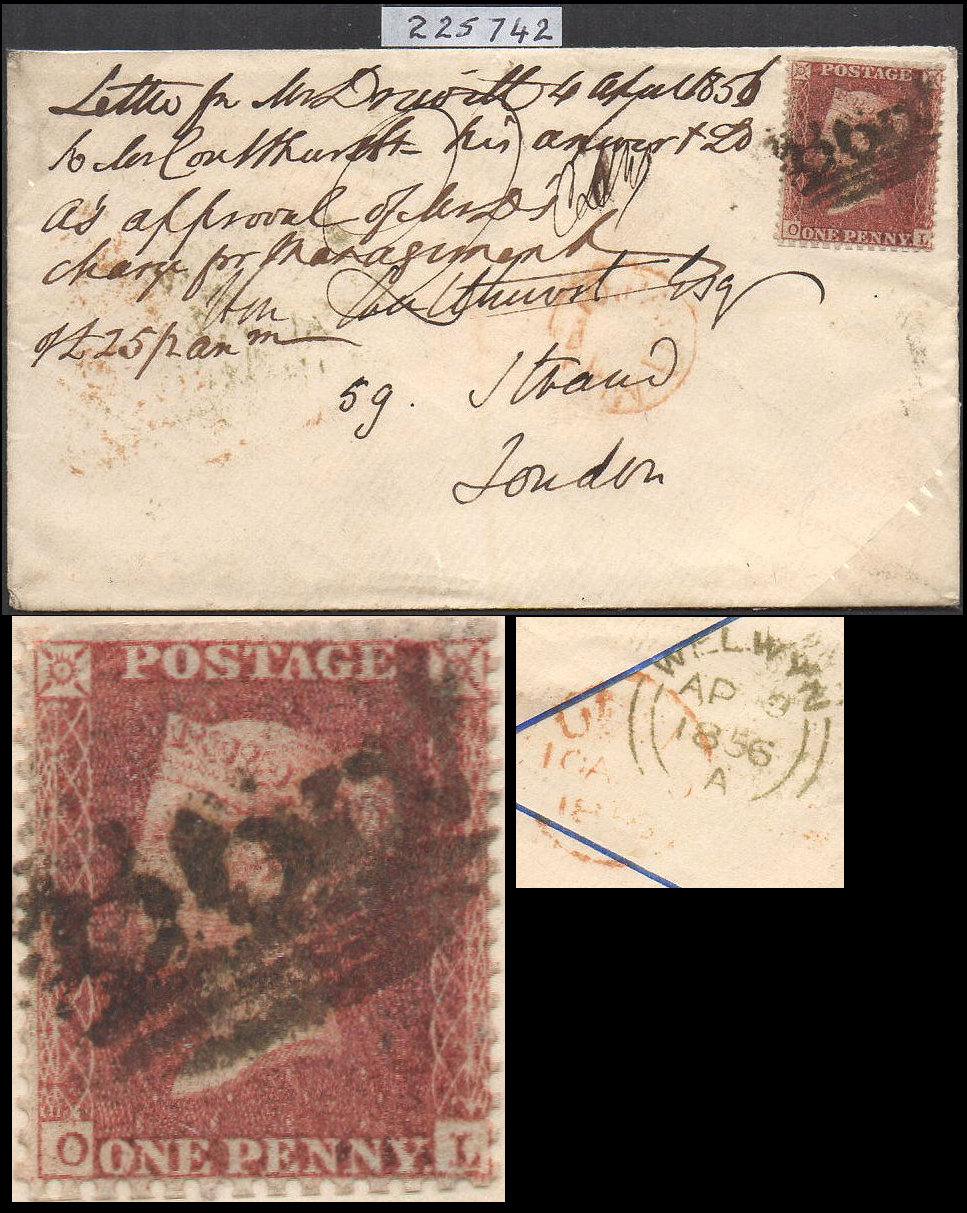 225742
Letter fr Mr 4 April 1856
to Mr Coulthurst his answer & Do
as approval of Mr D's
charge for Management
Wm Coulthurst Esq
of £25 p an m
59. Strand
London
POSTAGE
O ONE PENNY. L
POSTAGE
O ONE PENNY. L
WELWYN
AP 9
1856
A
10A
18